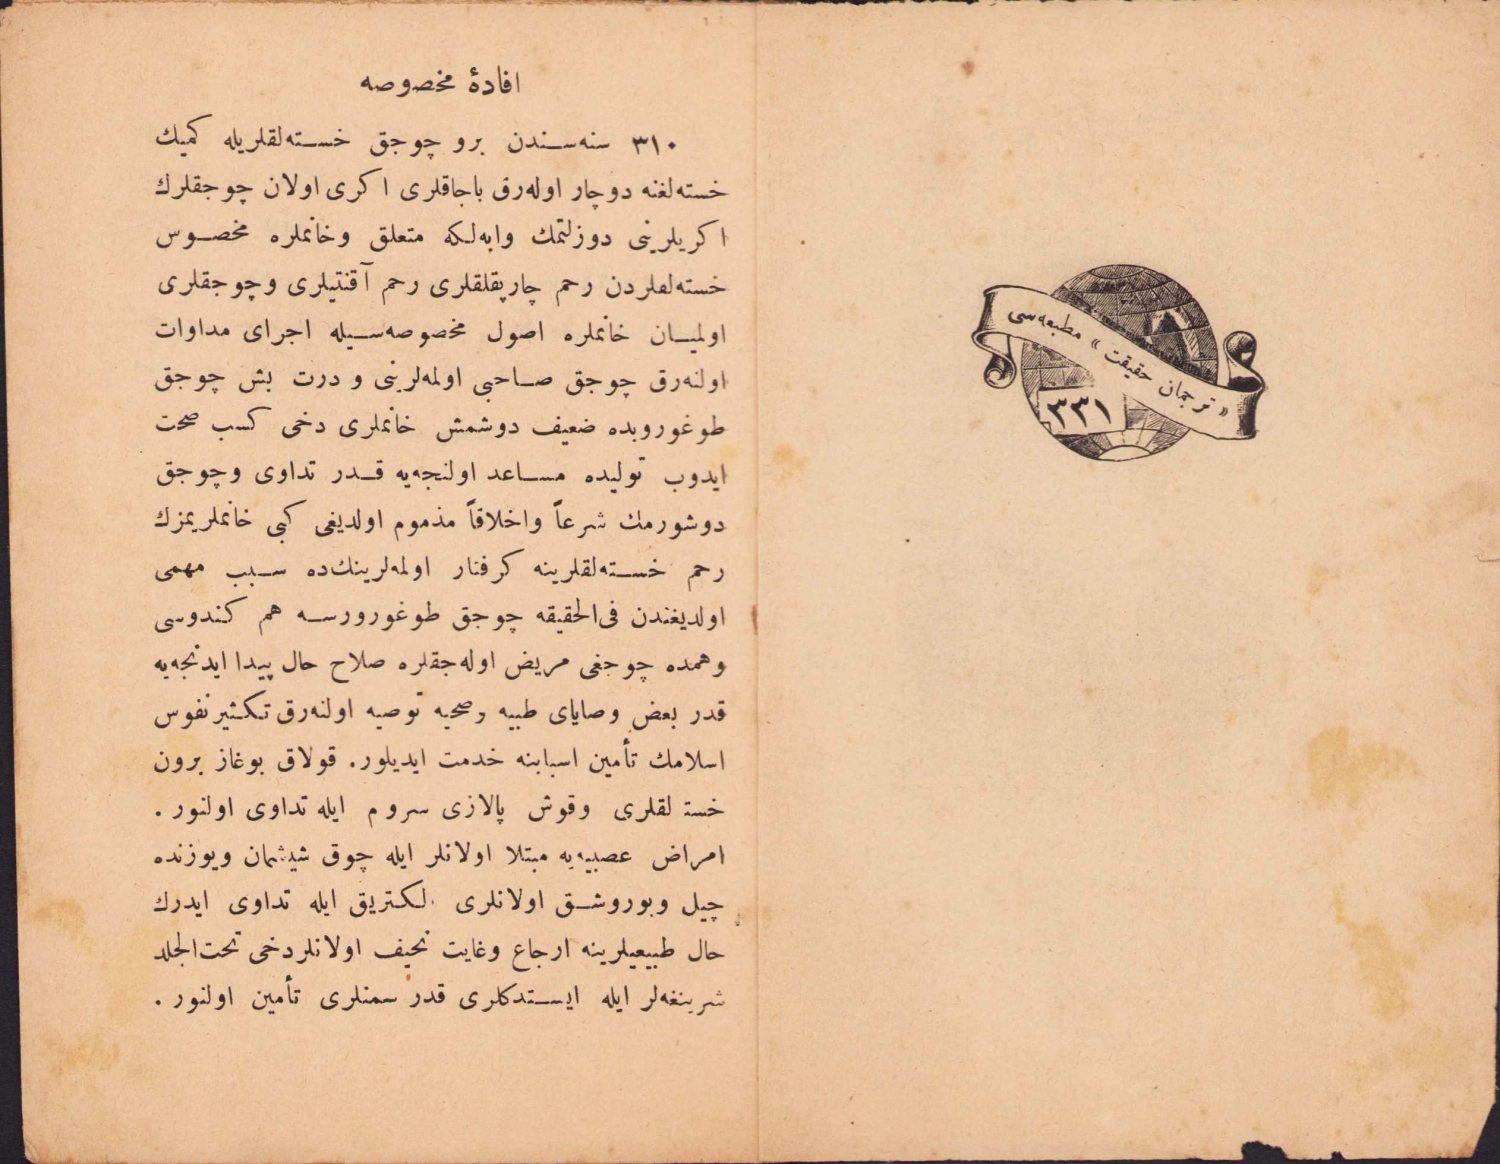 افادۀ مخصوصه
٣١٠ سنه‌سندن برو چوجق خسته‌لقلریله كمیك
خسته‌لغنه دوچار اوله‌رق باجاقلری اكری اولان چوجقلرك
اكریلرینی دوزلتمك وابه‌لكه متعلق وخانملره مخصوص
خسته‌لقلردن رحم چارپقلقلری رحم آقنتیلری وچوجقلری
اولمیان خانملره اصول مخصوصه‌سیله اجرای مداوات
اولنه‌رق چوجق صاحبی اولمه‌لرینی و درت بش چوجق
طوغوروبده ضعیف دوشمش خانملری دخی كسب صحت
ایدوب تولیده مساعد اولنجه‌یه قدر تداوی وچوجق
دوشورمك شرعاً واخلاقاً مذموم اولدیغی كبی خانملریمزك
رحم خسته‌لقلرینه كرفتار اولمه‌لرینك‌ده سبب مهمی
اولدیغندن فی‌الحقیقه چوجق طوغورورسه هم كندوسی
وهمده چوجغی مریض اوله‌جقلره صلاح حال پیدا ایدنجه‌یه
قدر بعض وصایای طبیه وصحیه توصیه اولنه‌رق تكثیرنفوس
اسلامك تأمین اسبابنه خدمت ایدیلور. قولاق بوغاز برون
خسته لقلری وقوش پالازی سروم ایله تداوی اولنور .
امراض عصبیه‌یه مبتلا اولانلر ایله چوق شیشمان ویوزنده
چیل وبوروشق اولانلری الكتریق ایله تداوی ایدرك
حال طبیعیلرینه ارجاع وغایت نحیف اولانلردخی تحت‌الجلد
شرینغه‌لر ایله ایستدكلری قدر سمنلری تأمین اولنور .
« ترجمان حقیقت » مطبعه‌سی
٣٣١